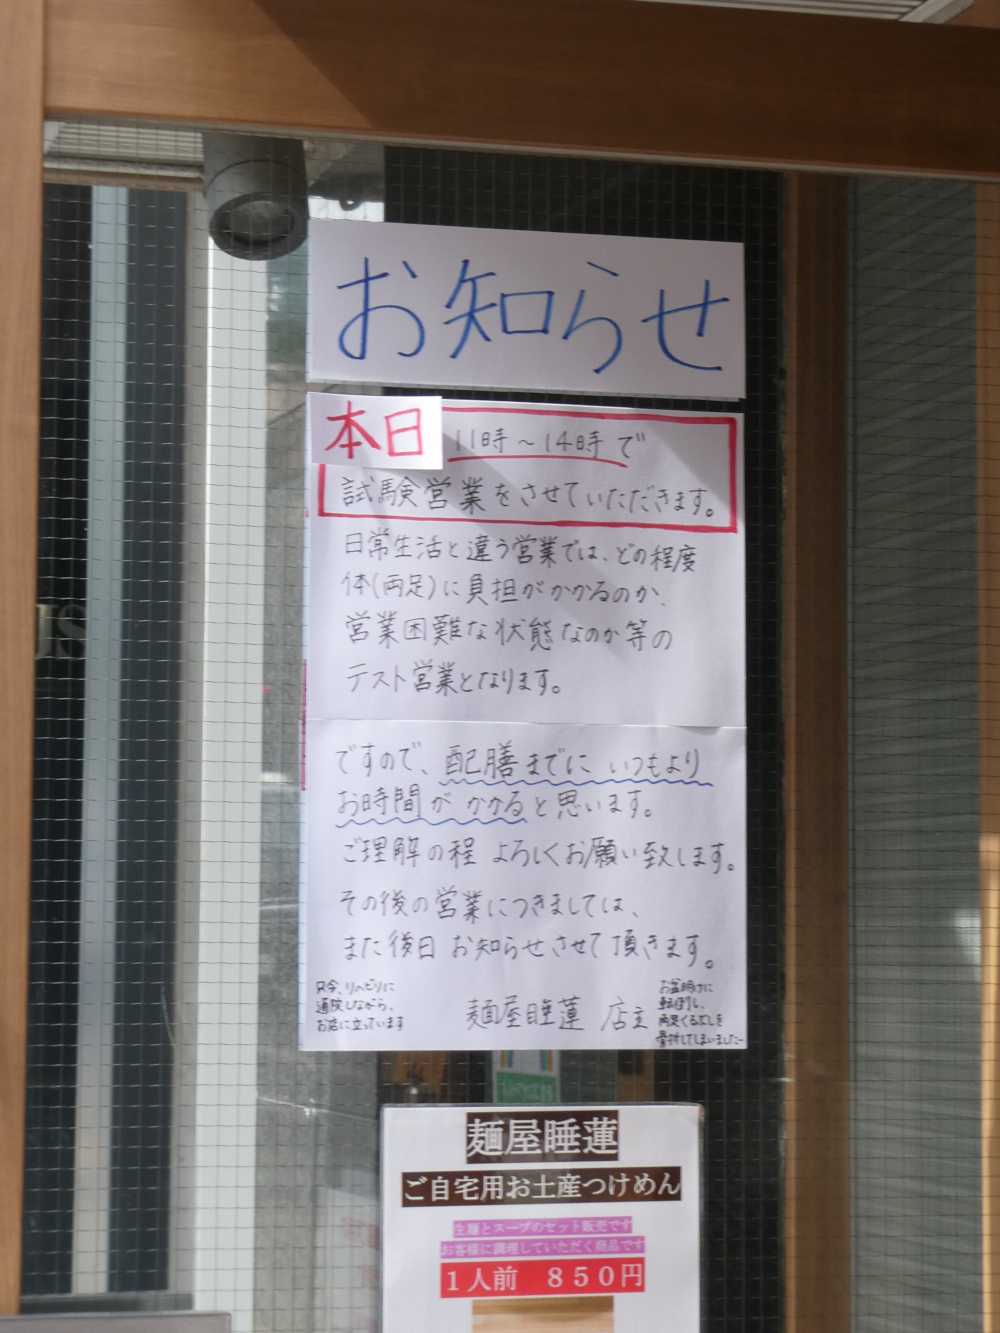 お知らせ
本日 11時～14時で
試験営業をさせていただきます。
日常生活と違う営業では、どの程度
体(両足)に負担がかかるのか、
営業困難な状態なのか等の
テスト営業となります。
ですので、配膳までに いつもより
お時間が かかると思います。
ご理解の程 よろしくお願い致します。
その後の営業につきましては、
また後日 お知らせさせて頂きます。
只今、リハビリに
通院しながら、
お店に立っています
麺屋睡蓮 店主
お盆明けに
転ばり、
両足くるぶしを
骨折してしまいました
麺屋睡蓮
ご自宅用お土産つけめん
生麺とスープのセット販売です
お客様に調理していただく商品です
1人前 850円